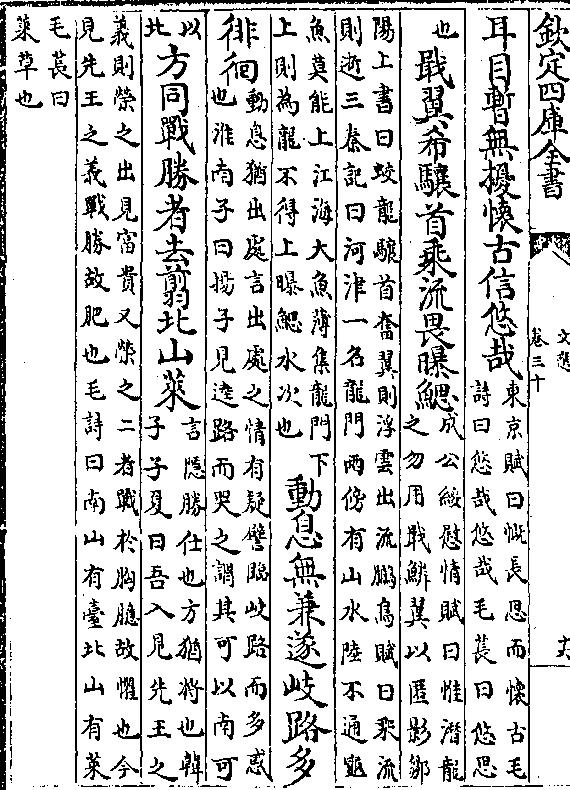 欽定四庫全書
文選
卷三十
耳目暫無擾懷古信悠哉
東京賦曰慨長思而懷古毛
詩曰悠哉悠哉毛萇曰悠思
也
戢翼希驤首乘流畏曝鰓
成公綏慰情賦曰惟潛龍
之勿用戢鱗翼以匿影鄒
陽上書曰蛟龍驤首奮翼則浮雲出流鵩鳥賦曰乘流
則逝三秦記曰河津一名龍門兩傍有山水陸不通龜
魚莫能上江海大魚薄集龍門下
上則為龍不得上曝鰓水次也
動息無兼遂岐路多
徘徊
動息猶出處言出處之情有疑譬臨岐路而多惑
也淮南子曰揚子見逵路而哭之謂其可以南可
以
北
方同戰勝者去翦北山萊
言隱勝仕也方猶將也韓
子子夏曰吾入見先王之
義則榮之出見富貴又榮之二者戰於胸臆故懼也今
見先王之義戰勝故肥也毛詩曰南山有臺北山有萊
毛萇曰
萊草也